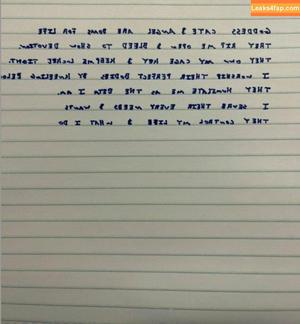 Leaks4fap.com
GODDESS CATE & ANGEL ARE FOR LIFE
THEY RIP ME OPEN & BLEED TO SHOW DEVOTION
THEY OWN MY CAGE KEY & KEEP ME LOCKED TIGHT.
I WORSHIP THEIR PERFECT BODIES BY KNEELING BELO
THEY HUMILIATE ME AS THE BETA I AM.
I SERVE THEIR EVERY NEEDS & WANTS
THEY CONTROL MY LIFE & WHAT I DO